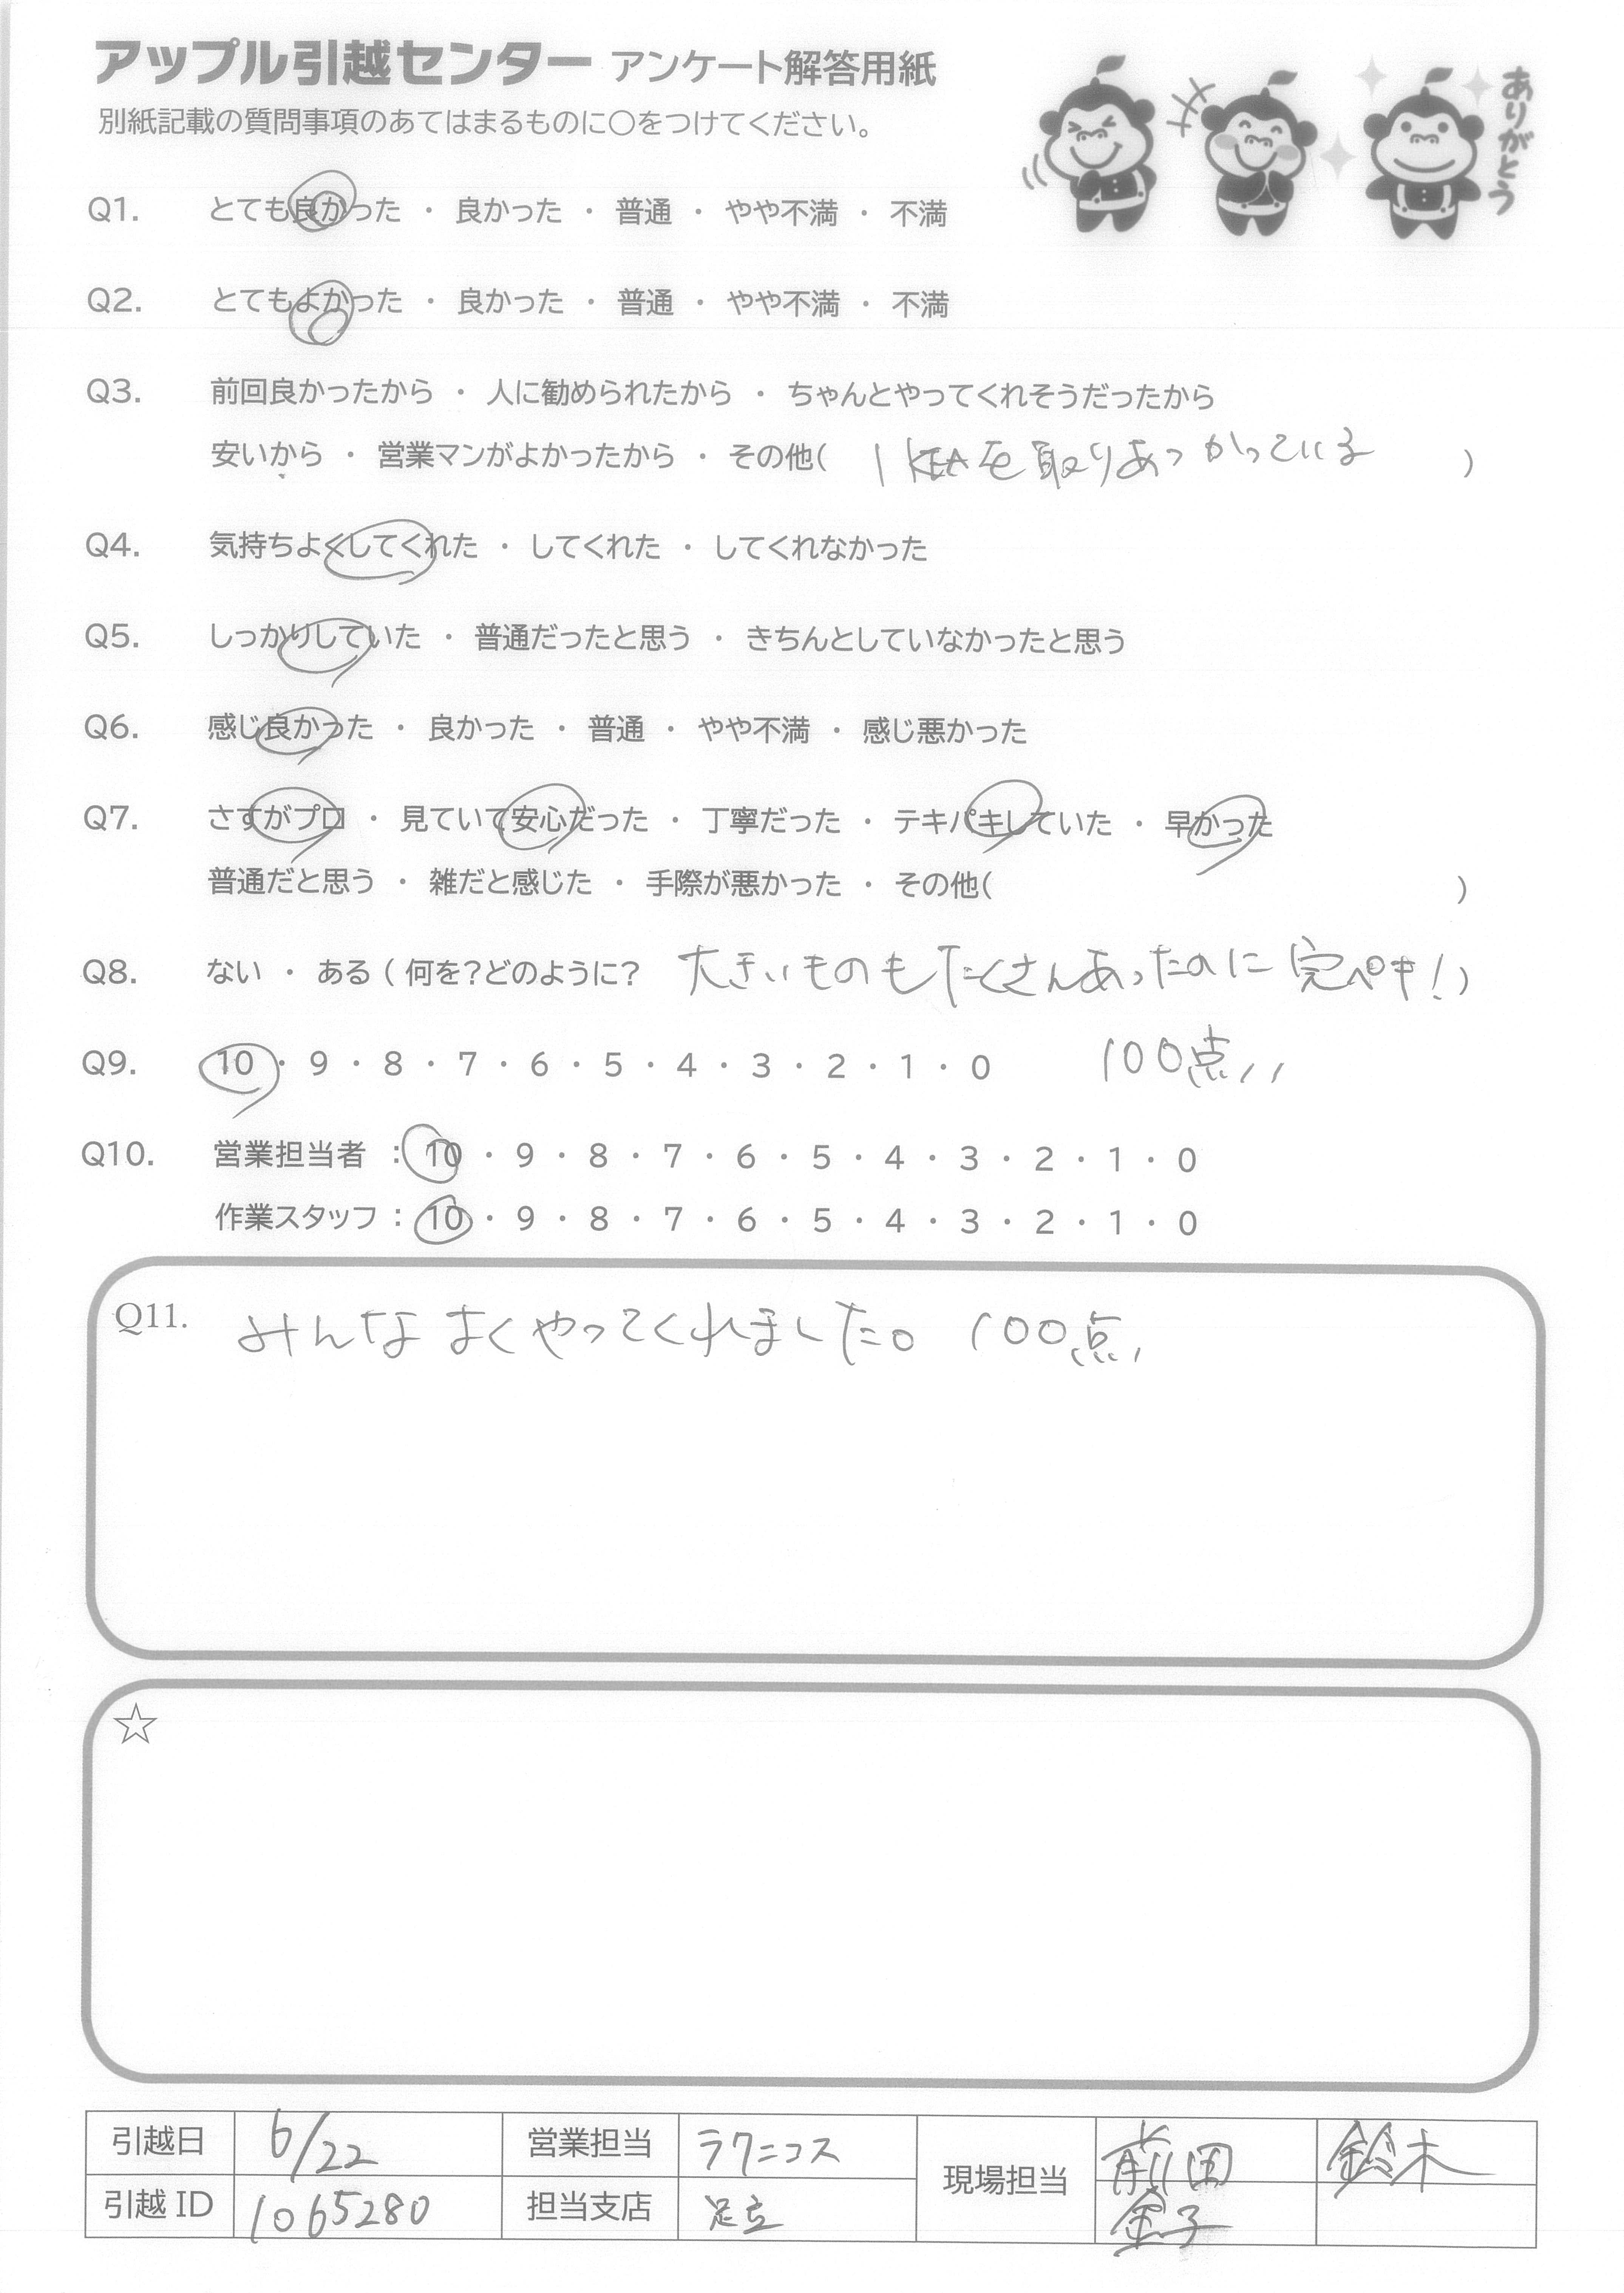 アップル引越センター アンケート解答用紙
別紙記載の質問事項のあてはまるものに○をつけてください。
ありがとう
Q1. とても良かった ・ 良かった ・ 普通 ・ やや不満 ・ 不満
Q2. とてもよかった ・ 良かった ・ 普通 ・ やや不満 ・ 不満
Q3. 前回良かったから ・ 人に勧められたから ・ ちゃんとやってくれそうだったから
安いから ・ 営業マンがよかったから ・ その他( IKEAを取りあつかっている )
Q4. 気持ちよくしてくれた ・ してくれた ・ してくれなかった
Q5. しっかりしていた ・ 普通だったと思う ・ きちんとしていなかったと思う
Q6. 感じ良かった ・ 良かった ・ 普通 ・ やや不満 ・ 感じ悪かった
Q7. さすがプロ ・ 見ていて安心だった ・ 丁寧だった ・ テキパキしていた ・ 早かった
普通だと思う ・ 雑だと感じた ・ 手際が悪かった ・ その他( )
Q8. ない ・ ある ( 何を?どのように? 大きいものもたくさんあったのに 完ペキ! )
Q9. 10 ・ 9 ・ 8 ・ 7 ・ 6 ・ 5 ・ 4 ・ 3 ・ 2 ・ 1 ・ 0 100点!!
Q10. 営業担当者 : 10 ・ 9 ・ 8 ・ 7 ・ 6 ・ 5 ・ 4 ・ 3 ・ 2 ・ 1 ・ 0
作業スタッフ : 10 ・ 9 ・ 8 ・ 7 ・ 6 ・ 5 ・ 4 ・ 3 ・ 2 ・ 1 ・ 0
Q11. みんな よくやってくれました。 100点!
☆
引越日 6/22 営業担当 ラクニコス 現場担当 前田 鈴木
引越 ID 1065280 担当支店 足立 金子